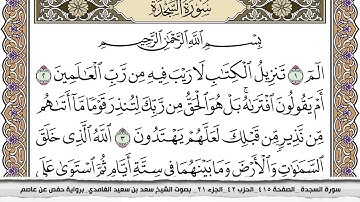 سُورَةُ السَّجْدَةِ
بِسْمِ اللَّهِ الرَّحْمَٰنِ الرَّحِيمِ
الٓمٓ ١ تَنزِيلُ الْكِتَٰبِ لَا رَيْبَ فِيهِ مِن رَّبِّ الْعَٰلَمِينَ ٢
أَمْ يَقُولُونَ افْتَرَىٰهُ ۚ بَلْ هُوَ الْحَقُّ مِن رَّبِّكَ لِتُنذِرَ قَوْمًا مَّآ أَتَىٰهُم
مِّن نَّذِيرٍ مِّن قَبْلِكَ لَعَلَّهُمْ يَهْتَدُونَ ٣ اللَّهُ الَّذِي خَلَقَ
السَّمَٰوَٰتِ وَالْأَرْضَ وَمَا بَيْنَهُمَا فِي سِتَّةِ أَيَّامٍ ثُمَّ اسْتَوَىٰ عَلَى
سورة السجدة _الصفحة ٤١٥ _الحزب ٤٢ _الجزء ٢١ _ بصوت الشيخ سعد بن سعيد الغامدي_ برواية حفص عن عاصم